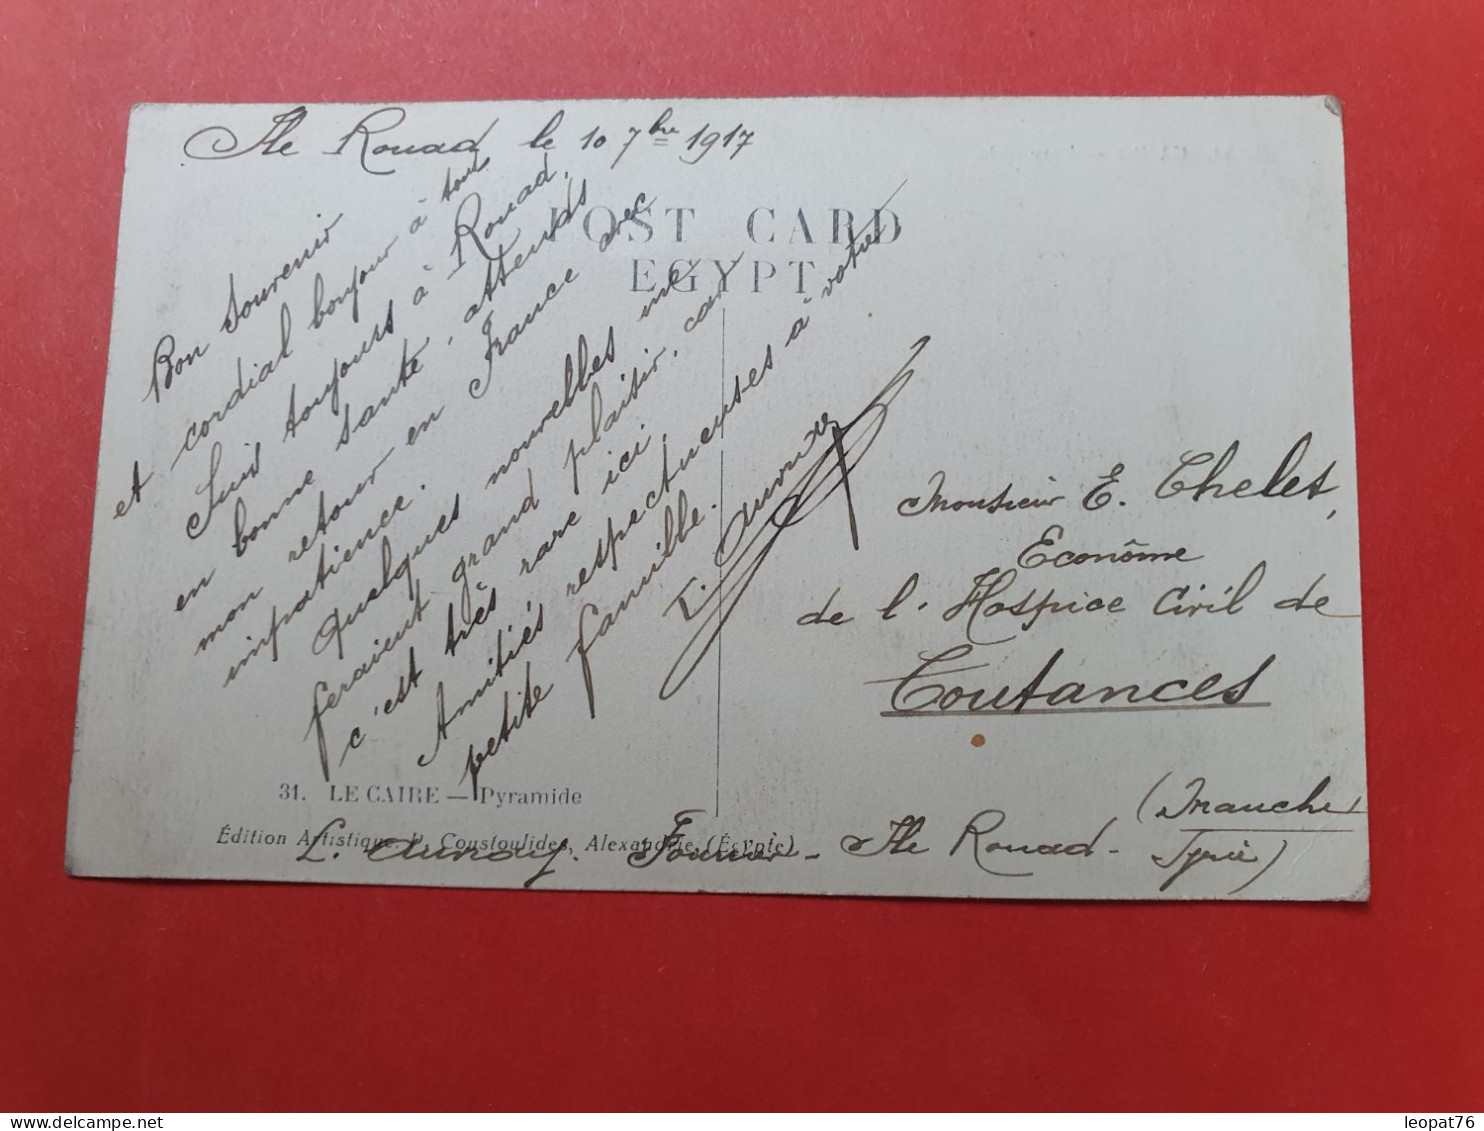 Ile Rouad le 10 7bre 1917
POST CARD
EGYPT
Bon Souvenir
et cordial bonjour à tous
Suis toujours à Rouad,
en bonne santé, attends
mon retour en France avec
impatience.
Quelques nouvelles me
feraient grand plaisir, car
c'est très rare ici.
Amitiés respectueuses à votre
petite famille.
Monsieur E. Thelet,
Econôme
de l'Hospice Civil de
Coutances
(Manche)
31. LE CAIRE — Pyramide
Édition Artistique P. Coustoulides, Alexandrie (Égypte)
L. Auvray. - Ile Rouad - Syrie)
leopat76